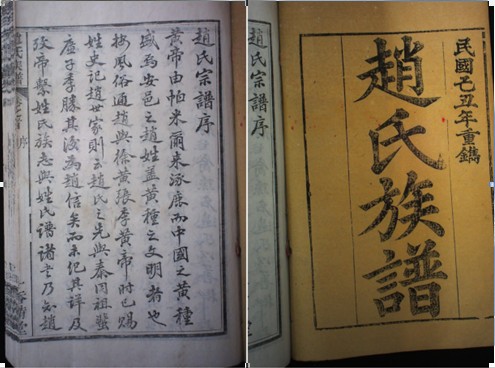 民國乙丑年重鐫
趙氏族譜
趙氏宗譜序
趙氏宗譜序
黃帝由帕米爾來涿鹿而中國之黃種
盛焉安邑之趙姓蓋黃種之文明者也
按風俗通趙與秦黃張李黃帝時已賜
姓史記趙世家則云趙氏之先與秦同祖
季勝其後為趙信矣而未紀其詳及
攷帝繫姓氏族志與姓氏譜諸書乃知趙